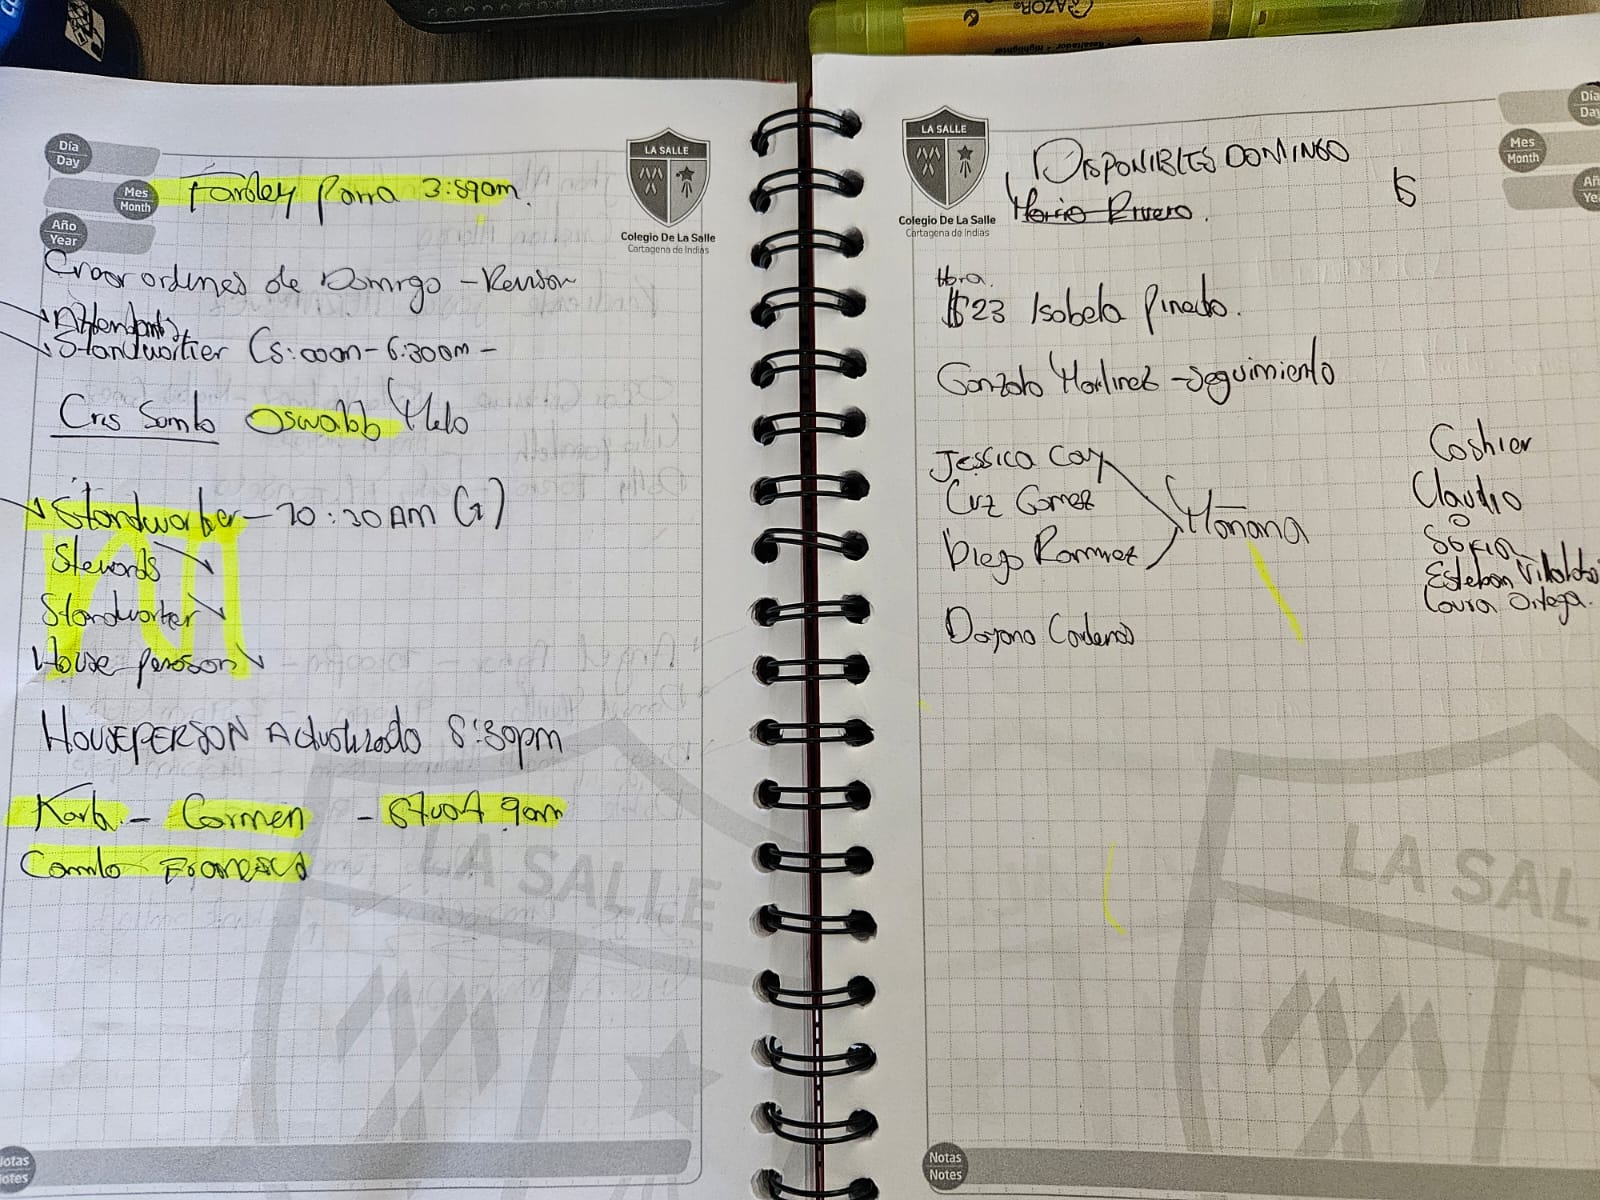 Día
Day
Mes
Month
Año
Year
LA SALLE
Colegio De La Salle
Cartagena de Indias
Farley Parra 3:59am.
Crear ordenes de Domingo - Revisar
Attendants
Standworker (5:00am - 6:30am -
Cris Samto Oswaldo Melo
Standworker - 10:30 AM (1)
Stewards
Standworker
House person
HOUSEPERSON Actualizado 8:30pm
Karla - Carmen - 9am
Camilo Francisco
LA SALLE
Notas
Notes
LA SALLE
Colegio De La Salle
Cartagena de Indias
Día
Day
Mes
Month
DISPONIBLES DOMINGO
Mario Rivero.
Hora.
$23 Isabela Pinedo.
Gonzalo Martinez - Seguimiento
Jessica Cay
Cruz Gomez
Diego Ramirez
Mañana
Dayana Cardenas
Cashier
Claudio
Sofia
Esteban Villalobo
Laura Ortega.
LA SAL
Notas
Notes